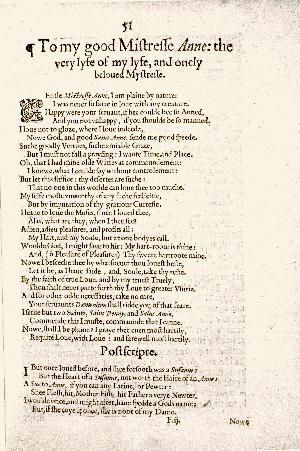 51
¶ To my good Mistresse Anne: the
very lyfe of my lyfe, and onely
beloued Mystresse.
Entle Mistresse Anne, I am plaine by nature:
I was neuer so farre in loue with any creature.
Happy were your seruant, if hee coulde bee so Anned,
And you not vnhappy, if you shoulde be so manned.
I loue not to gloze, where I loue indeede,
Nowe God, and good Saint Anne, sende me good speede.
Suche goodly Vertues, suche amiable Grace,
But I must not fall a praysing: I wante Time, and Place.
Oh, that I had mine olde Wittes at commaundement:
I knowe, what I coulde say without controlement:
But let this suffice: thy desertes are suche:
That no one in this worlde can loue thee too muche.
My selfe moste vnworthy of any suche foelicitie,
But by imputation of thy gratious Curtesie.
I leaue to loue the Muses, since I loued thee,
Alas, what are they, when I thee see?
Adieu, adieu pleasures, and profits all:
My Hart, and my Soule, but at one bodyes call.
Woulde God, I might saye to hir: My hart-roote is thine:
And, (ô Pleasure of Pleasures) Thy sweete hart-roote mine.
Nowe I beseeche thee by whatsoeuer thou louest beste,
Let it be, as I haue saide, and, Soule, take thy reste.
By the faith of true Loue, and by my truest Truely,
Thou shalt neuer putt forth thy Loue to greater Vsurie.
And for other odde necessaries, take no care,
Your seruaunts Dæmonium shall ridde you of that feare.
I serue but two Saints, Saint Penny, and Saint Anne,
Commende this I muste, commaunde that I canne.
Nowe, shall I be plaine? I praye thee euen most hartily,
Requite Loue, with Loue: and farewell most hartily.
Postscripte.
I But once loued before, and shee forsooth was a Susanne:
But the Heart of a Susanne, not worth the Haire of an Anne:
A Sus to Anne, if you can any Latine, or Pewter:
Shee Flesh, hir Mother Fish, hir Father a verye Newter.
I woulde once, and might after, haue spedde a Gods name:
But, if she coye it once, she is none of my Dame.
Nowe